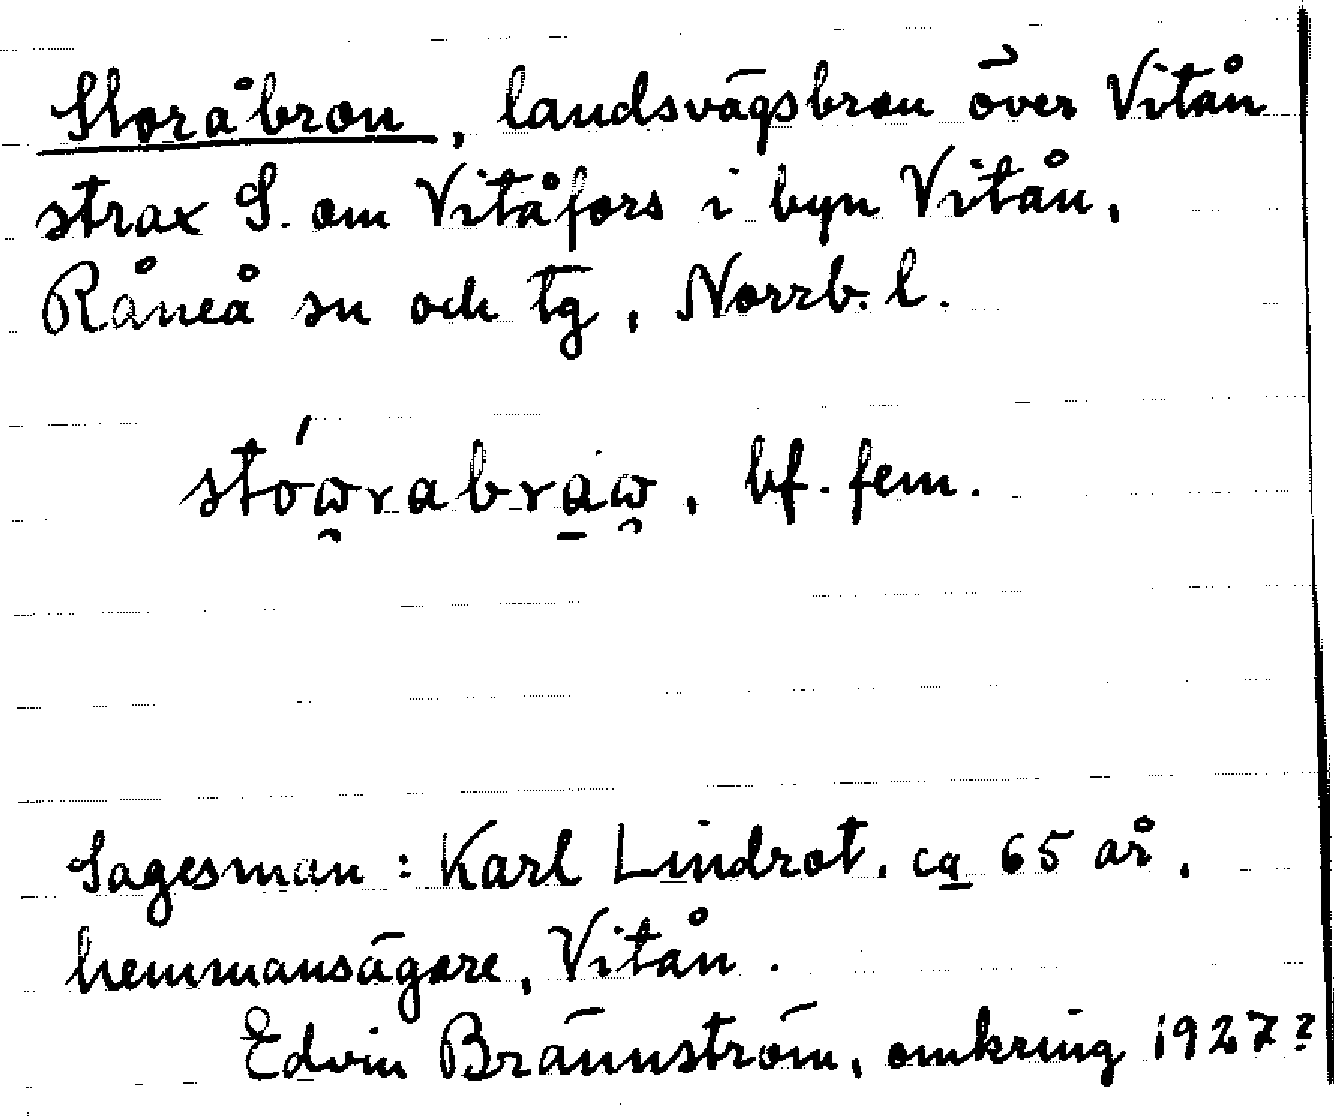 Storåbron, landsvägsbron över Vitån
strax S. om Vitåfors i byn Vitån,
Råneå sn och tg, Norrb. l.
stóω̯rabra̠ω̯, bf. fem.
Sagesman: Karl Lindrot, ca 65 år,
hemmansägare, Vitån.
Edvin Brännström, omkring 1927?